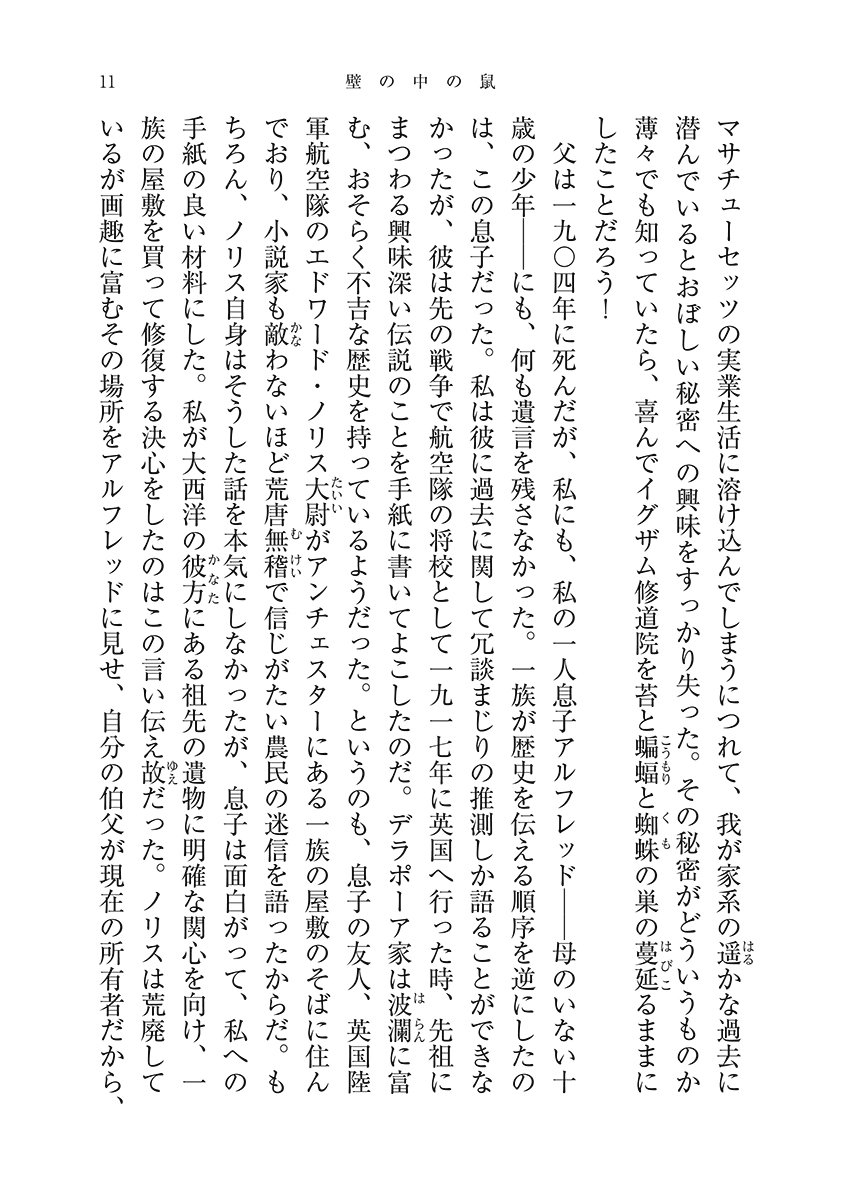 11
壁の中の鼠
マサチューセッツの実業生活に溶け込んでしまうにつれて、我が家系の遥かな過去に
潜んでいるとおぼしい秘密への興味をすっかり失った。その秘密がどういうものか
薄々でも知っていたら、喜んでイグザム修道院を苔と蝙蝠と蜘蛛の巣の蔓延るままに
したことだろう！
父は一九〇四年に死んだが、私にも、私の一人息子アルフレッド――母のいない十
歳の少年――にも、何も遺言を残さなかった。一族が歴史を伝える順序を逆にしたの
は、この息子だった。私は彼に過去に関して冗談まじりの推測しか語ることができな
かったが、彼は先の戦争で航空隊の将校として一九一七年に英国へ行った時、先祖に
まつわる興味深い伝説のことを手紙に書いてよこしたのだ。デラポーア家は波瀾に富
む、おそらく不吉な歴史を持っているようだった。というのも、息子の友人、英国陸
軍航空隊のエドワード・ノリス大尉がアンチェスターにある一族の屋敷のそばに住ん
でおり、小説家も敵わないほど荒唐無稽で信じがたい農民の迷信を語ったからだ。も
ちろん、ノリス自身はそうした話を本気にしなかったが、息子は面白がって、私への
手紙の良い材料にした。私が大西洋の彼方にある祖先の遺物に明確な関心を向け、一
族の屋敷を買って修復する決心をしたのはこの言い伝え故だった。ノリスは荒廃して
いるが画趣に富むその場所をアルフレッドに見せ、自分の伯父が現在の所有者だから、